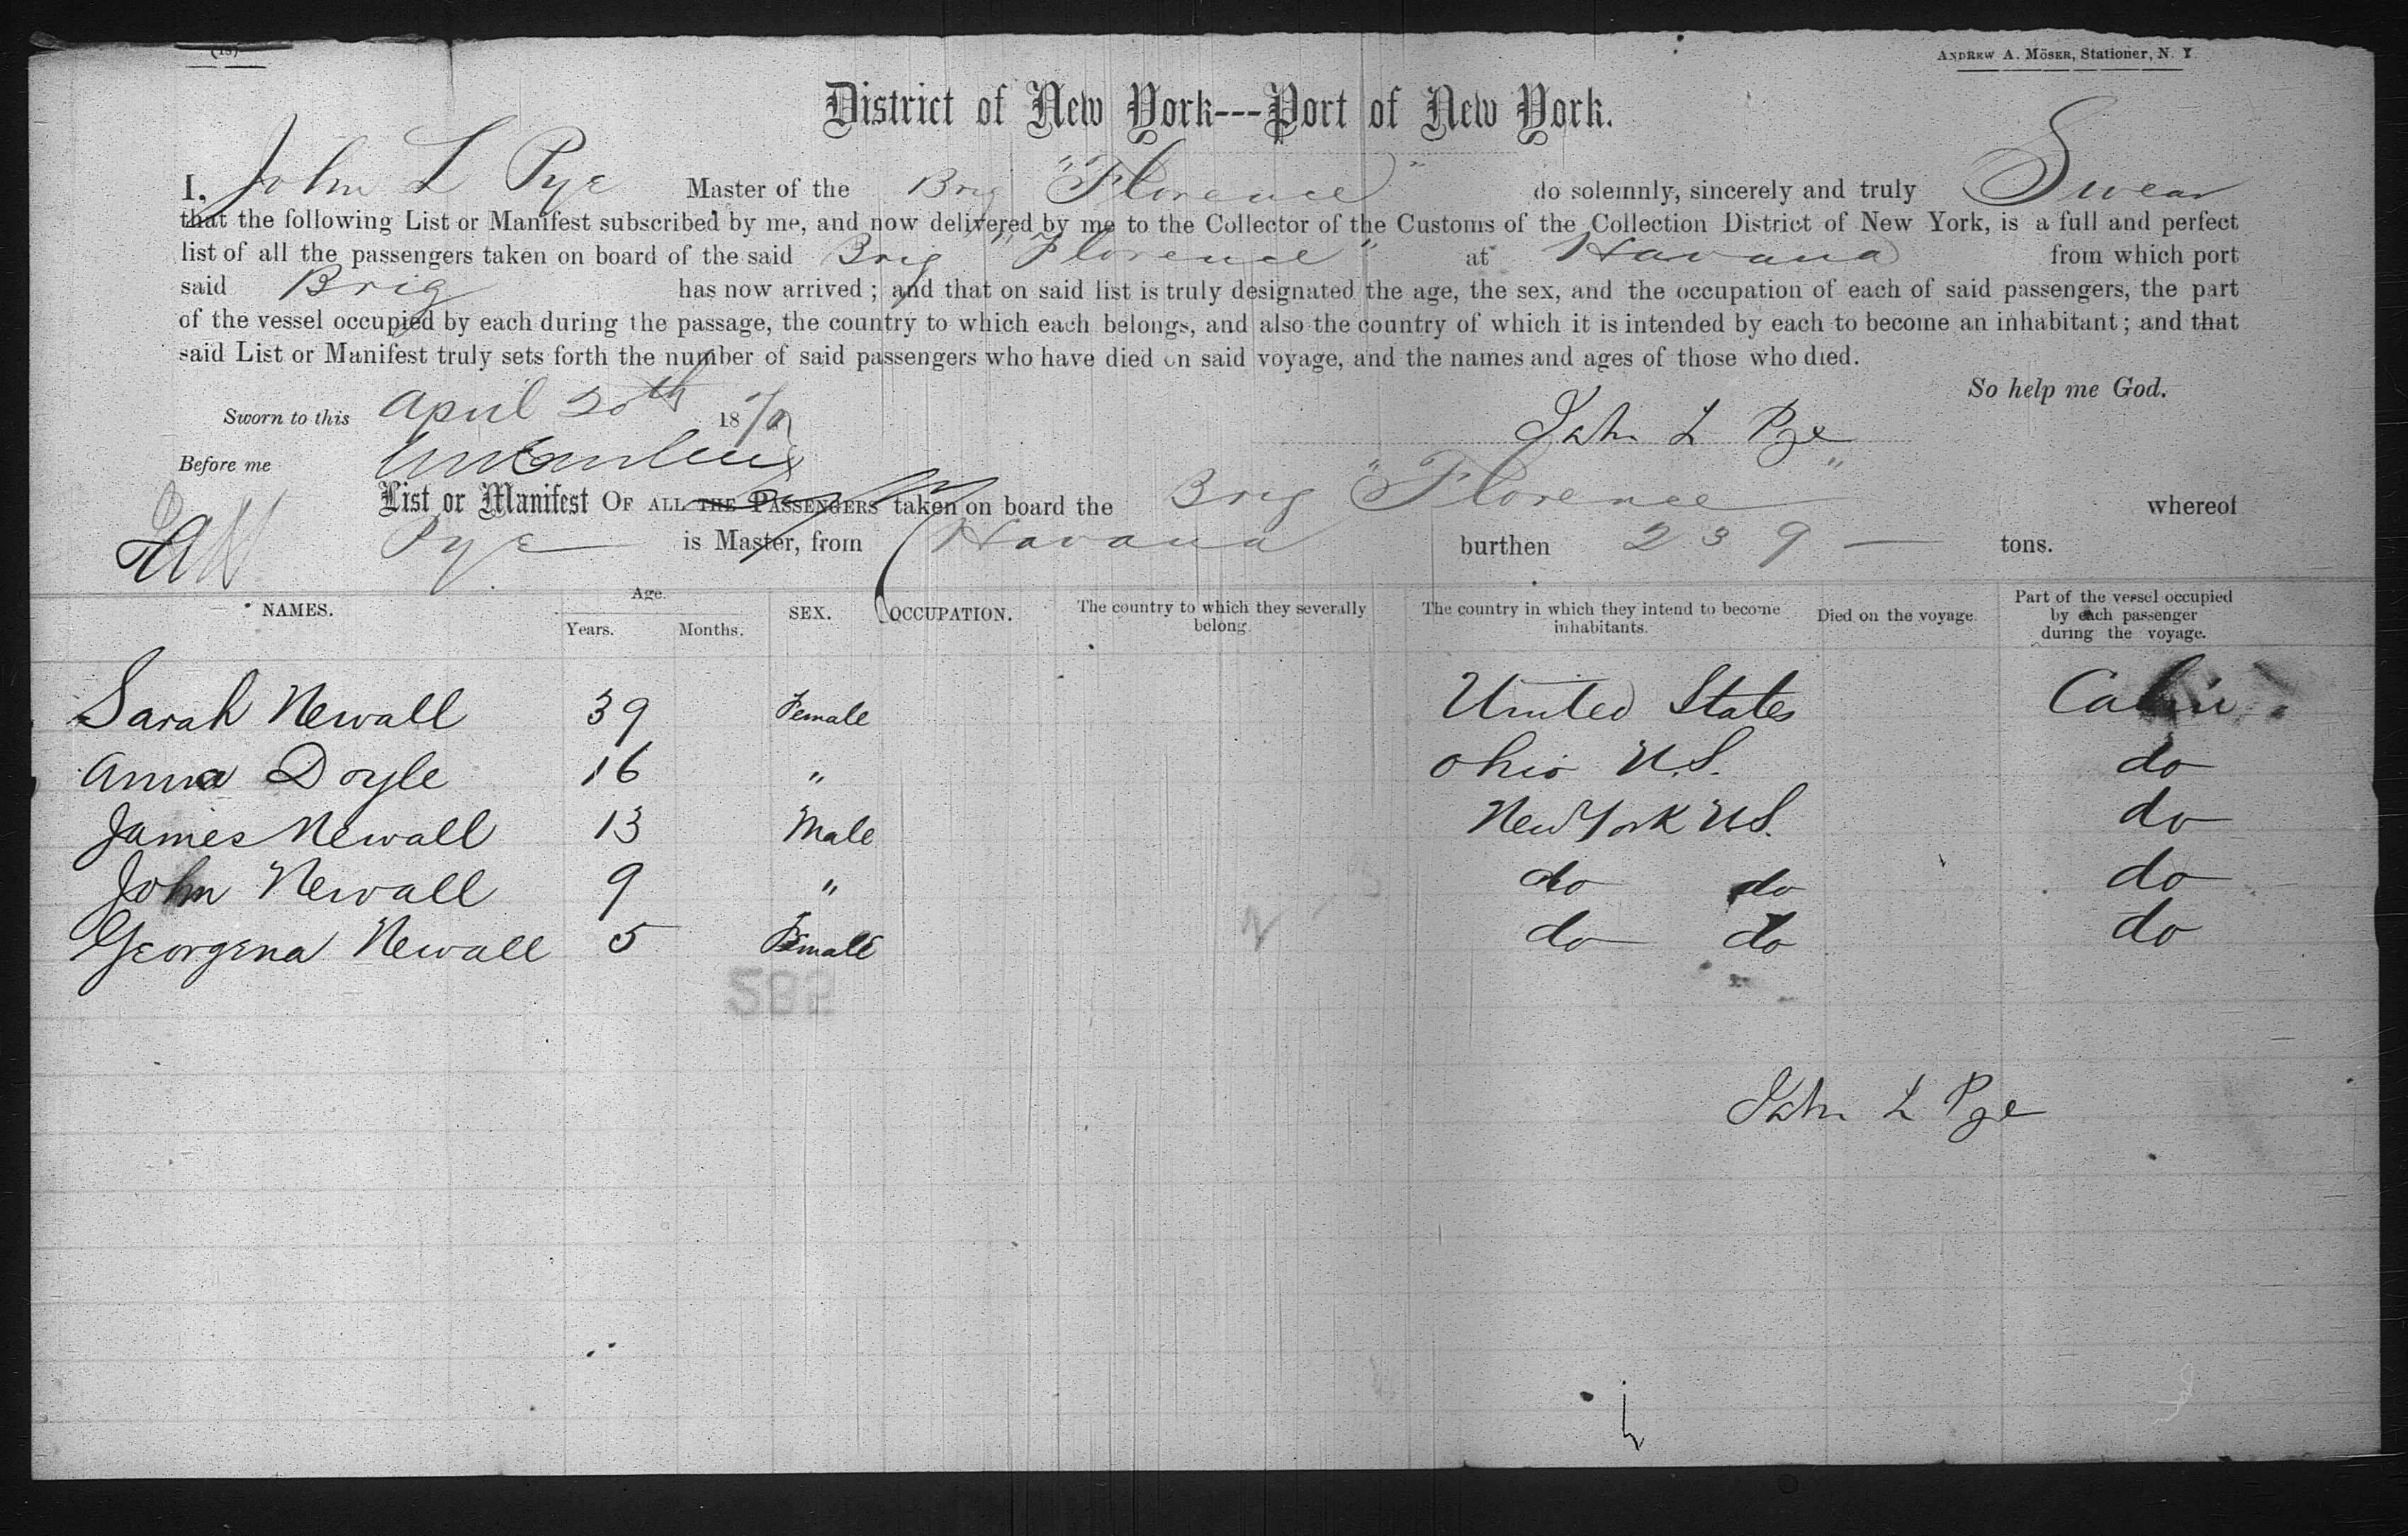 (13)
ANDREW A. MÖSER, Stationer, N. Y.
District of New York---Port of New York.
I, John L Pye Master of the Brig "Florence" do solemnly, sincerely and truly Swear
that the following List or Manifest subscribed by me, and now delivered by me to the Collector of the Customs of the Collection District of New York, is a full and perfect
list of all the passengers taken on board of the said Brig "Florence" at Havana from which port
said Brig has now arrived; and that on said list is truly designated the age, the sex, and the occupation of each of said passengers, the part
of the vessel occupied by each during the passage, the country to which each belongs, and also the country of which it is intended by each to become an inhabitant; and that
said List or Manifest truly sets forth the number of said passengers who have died on said voyage, and the names and ages of those who died.
So help me God.
Sworn to this April 20th 18
John L Pye
Before me
List or Manifest OF ALL THE PASSENGERS taken on board the Brig "Florence" whereof
Pye is Master, from Havana burthen 239 — tons.
NAMES. Age. Years. Months. SEX. OCCUPATION. The country to which they severally belong. The country in which they intend to become inhabitants. Died on the voyage. Part of the vessel occupied by each passenger during the voyage.
Sarah Newall 39 Female United States Cabin
Anna Doyle 16 " Ohio U.S. do
James Newall 13 Male New York US. do
John Newall 9 " do do do
Georgena Newall 5 Female do do do
John L Pye